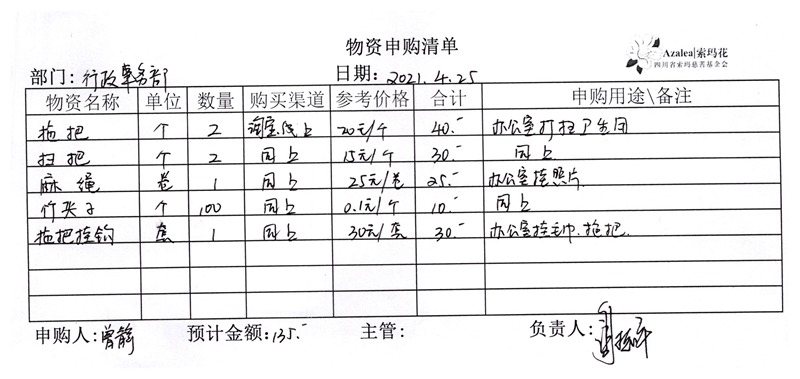 物资申购清单
Azalea|索玛花
四川省索玛慈善基金会
部门:行政事务部 日期:2021.4.25
物资名称 单位 数量 购买渠道 参考价格 合计 申购用途\备注
拖把 个 2 淘宝线上 20元/个 40.- 办公室打扫卫生用
扫把 个 2 同上 15元/个 30.- 同上
麻绳 卷 1 同上 25元/卷 25.- 办公室挂照片
竹夹子 个 100 同上 0.1元/个 10.- 同上
拖把挂钩 套 1 同上 30元/套 30.- 办公室挂毛巾、拖把.
申购人:曾静 预计金额:135.- 主管: 负责人: